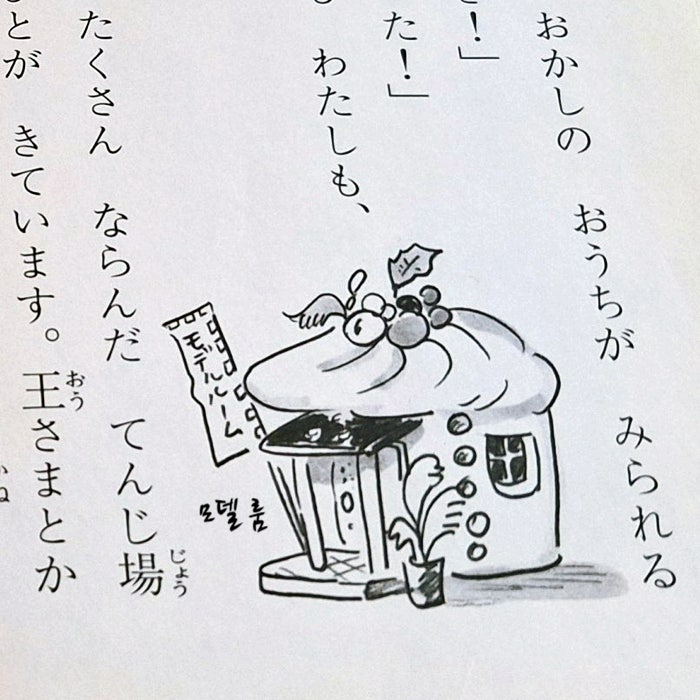 おかしの おうちが みられる
！」
た！」
わたしも、
モデルルーム
모델 룸
たくさん ならんだ てんじ場
じょう
とが きています。王さまとか
おう